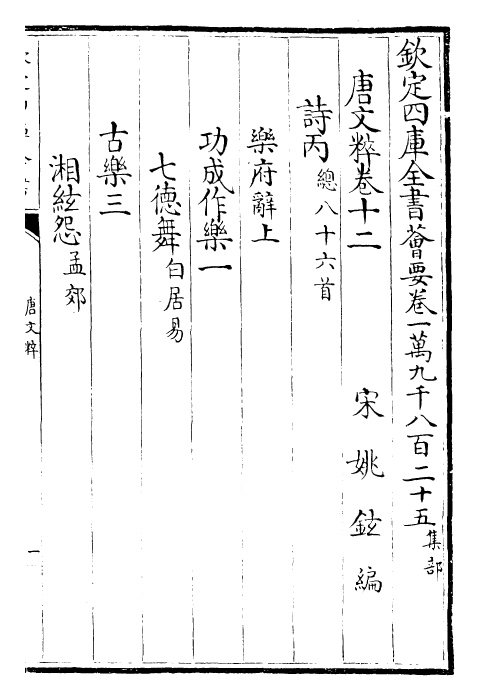 欽定四庫全書薈要卷一萬九千八百二十五 集部
唐文粹卷十二
宋 姚鉉 編
詩丙 總八十六首
樂府辭上
功成作樂一
七德舞 白居易
古樂三
湘絃怨 孟郊
唐文粹
一